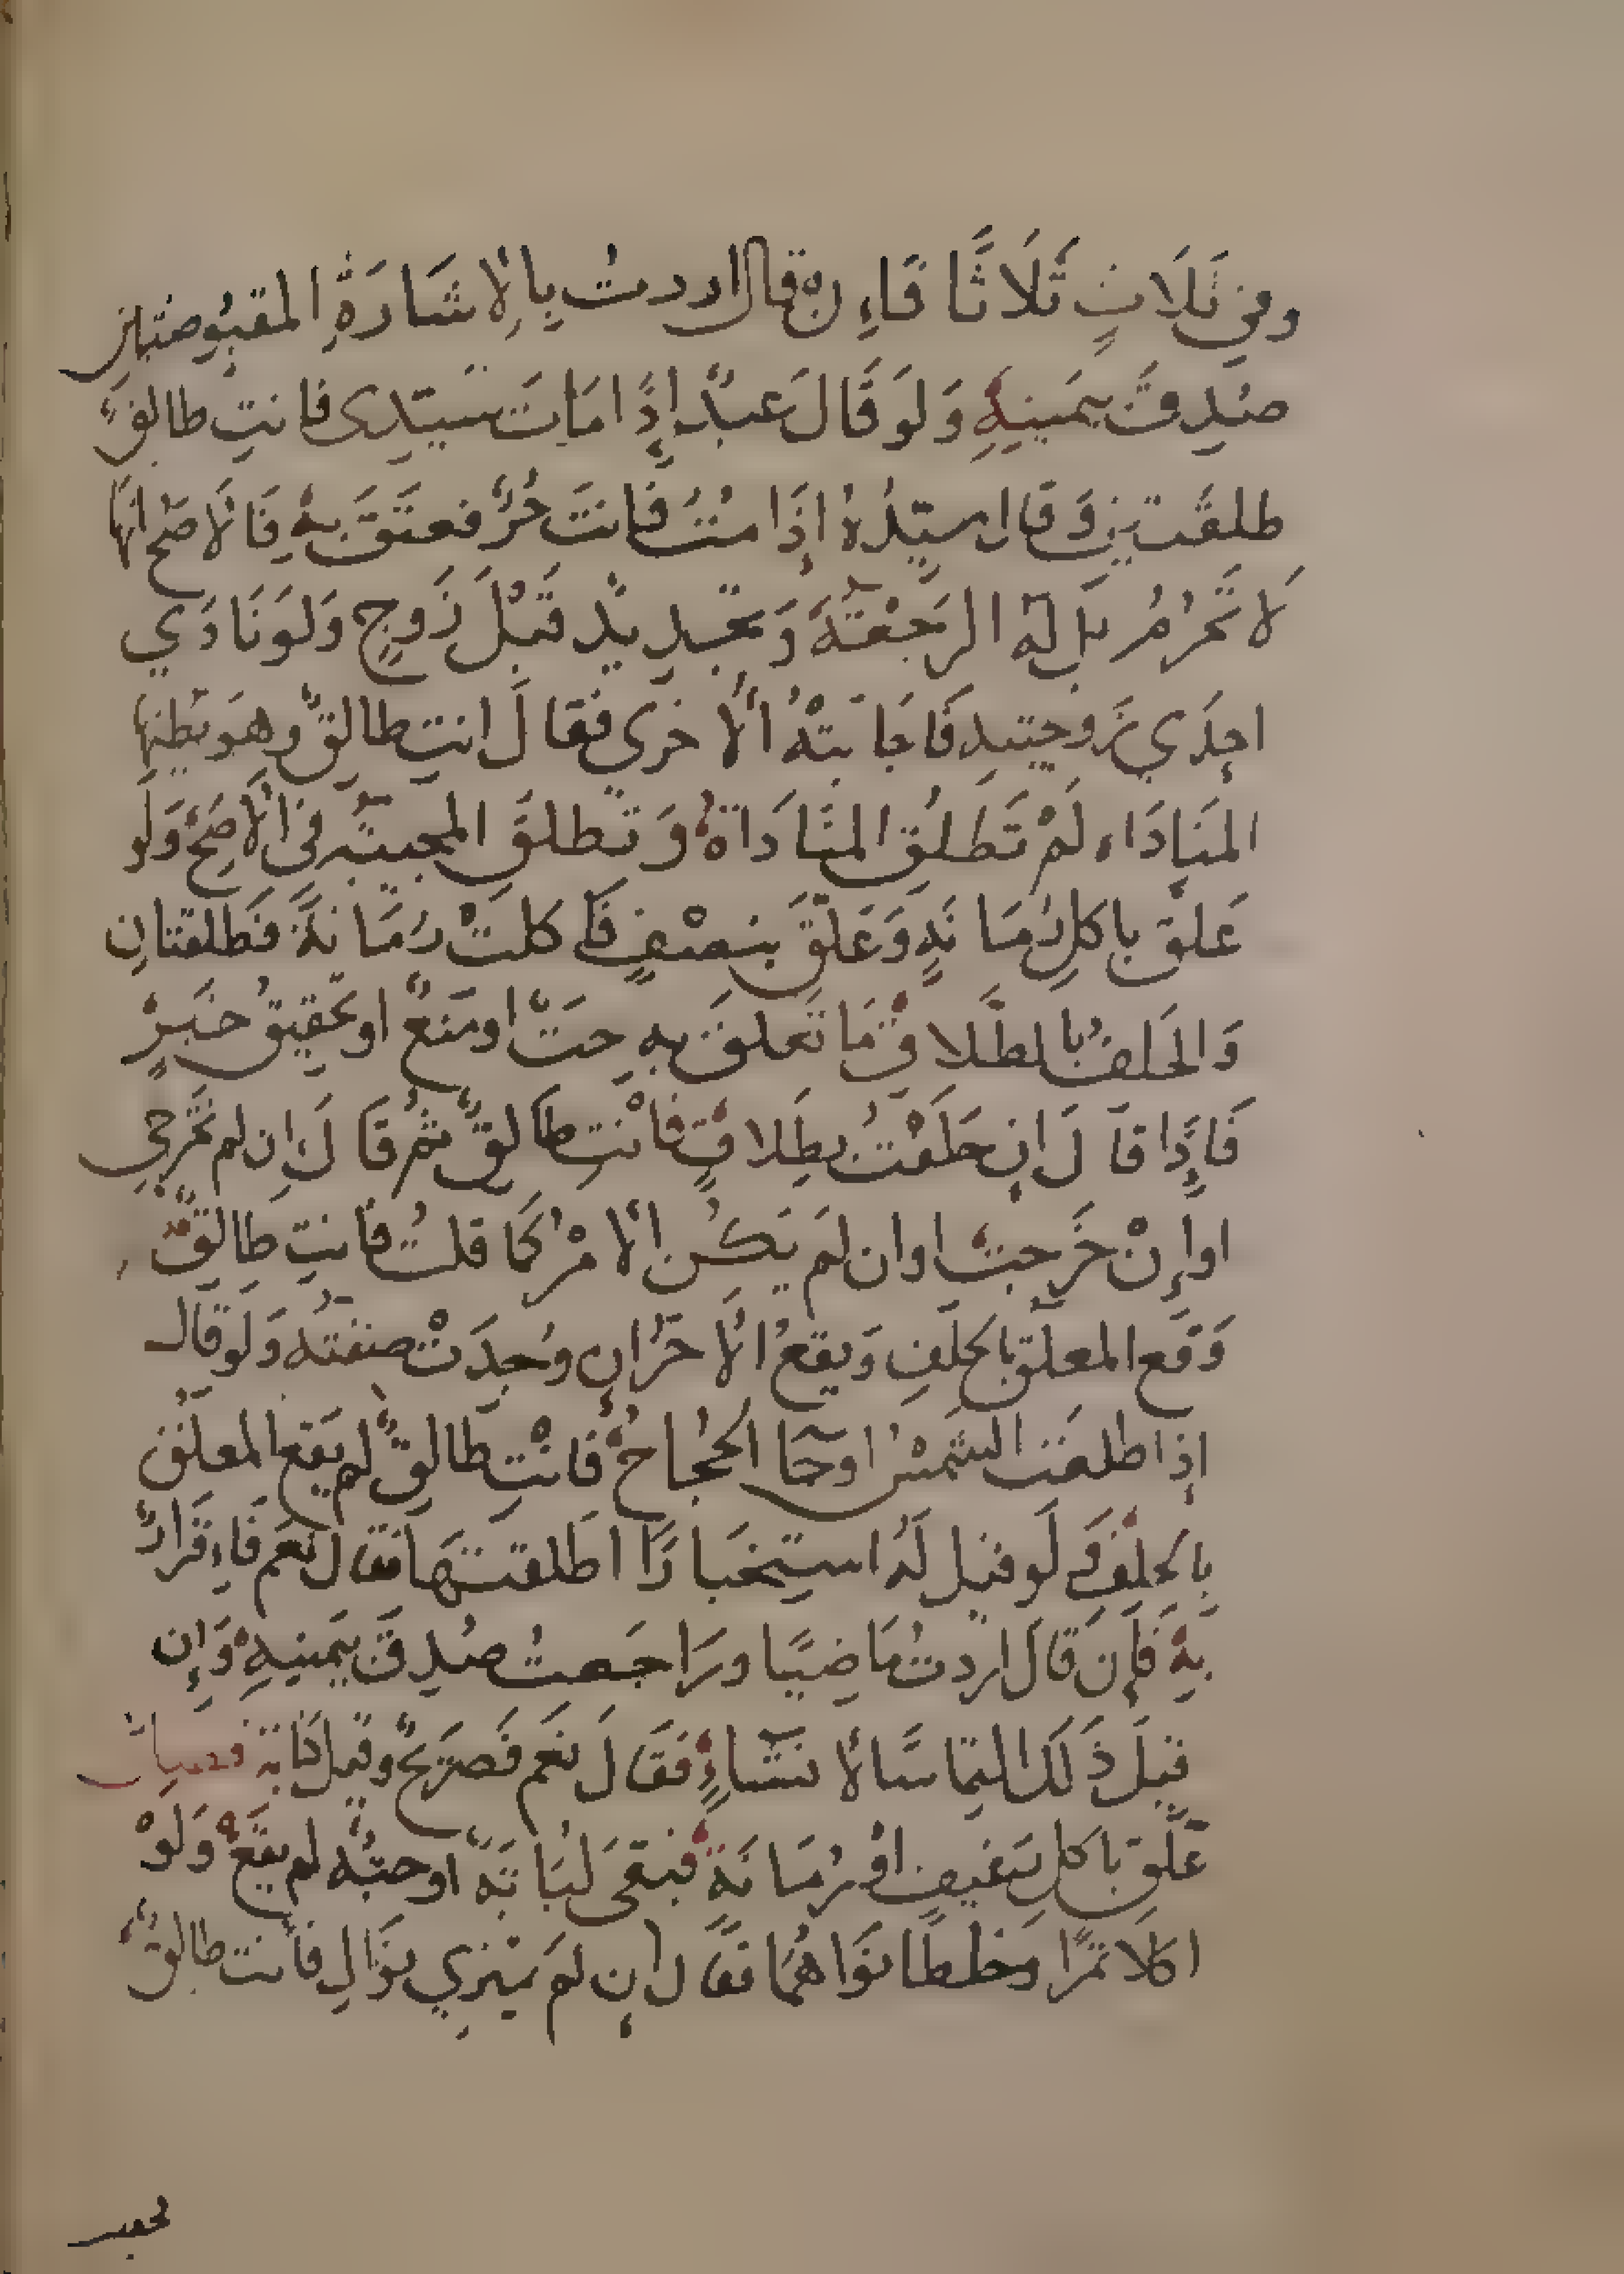 وفي ثَلَاثٍ ثَلَاثًا فَاءِن قال اردت بِالإشَارَةِ المقبُوضتين
صُدِقَ بيَمينِهِ وَلَو قَالَ عَبدٌ إذَا مَاتَ سَيّدى فانتِ طالقٌ
طلقَتين وَقال سيّدُهُ إذَا متُ فَانتَ حُرٌّ فعتَقَ بهِ فَالأصَحُ انها
لا تَحْرُمُ بل له الرَجْعَةَ وَتجديد قَبْلَ زَوجٍ وَلَو نَادَي
احِدَي زَوجتيه فَاجَابتْهُ الأخري فقالَ انتِ طالِقٌ وهو يظنها
المنَادَاه لَمْ تَطلُقِ المنَادَاةُ وَتطلقَ المجيبَه في الأصَحِ وَلَو
عَلقَ باكلِ رُمَانَةٍ وَعَلَّقَ بنِصْفٍ فَأكلَتْ رُمَانَةً فَطلقتانِ
وَالحَلفُ بالطَّلاقِ مَا تَعلقَ بهِ حَثٌ او مَنعٌ او تحَقيقُ خَبَرٍ
فَإذَا قَالَ إن حَلَفْتُ بِطَلاقٍ فَأنْتِ طَالقٌ ثمُ قَالَ إن لم تخْرُجي
او إنْ خَرجتِ او ان لَم يَكُن الأمْرُ كَمَا قلتُ فَانتِ طَالِقٌ
وَقَع المعلق بالحَلفِ وَيقعُ الأخَرُ إن وُجِدَتْ صفتُه وَلَو قال
إذا طلعَت الشَمْسُ او جَاءَ الحجُاجُ فَانْتِ طالِقٌ لم يَقع المعلقُ
بِالحلِفِ وَلَو قيلَ لَهُ استخبارًا اطَلقتَهَا فقالَ نَعَم فَاءِقرارٌ
بِهِ فَإن قَالَ اردت مَاضيًا وَرَاجَعتُ صُدِقَ بيَمينِهِ وَإن
قيلَ ذَلكَ التِماسًا لأنشَاءٍ فَقَالَ نَعَم فَصَريحٌ وَقيلَ كنَاية فصل
علّقَ باكلِ رَغيفٍ اوْ رُمَانَةٍ فبَقىَ لبَابَةٌ او حبَّه لم يقَعْ وَلَوْ
اكلا تمْرًا وَخلطا نوَاهمَا فقَالَ إن لَم تمَيّزي نوَاكِ فَأنت طالقٌ